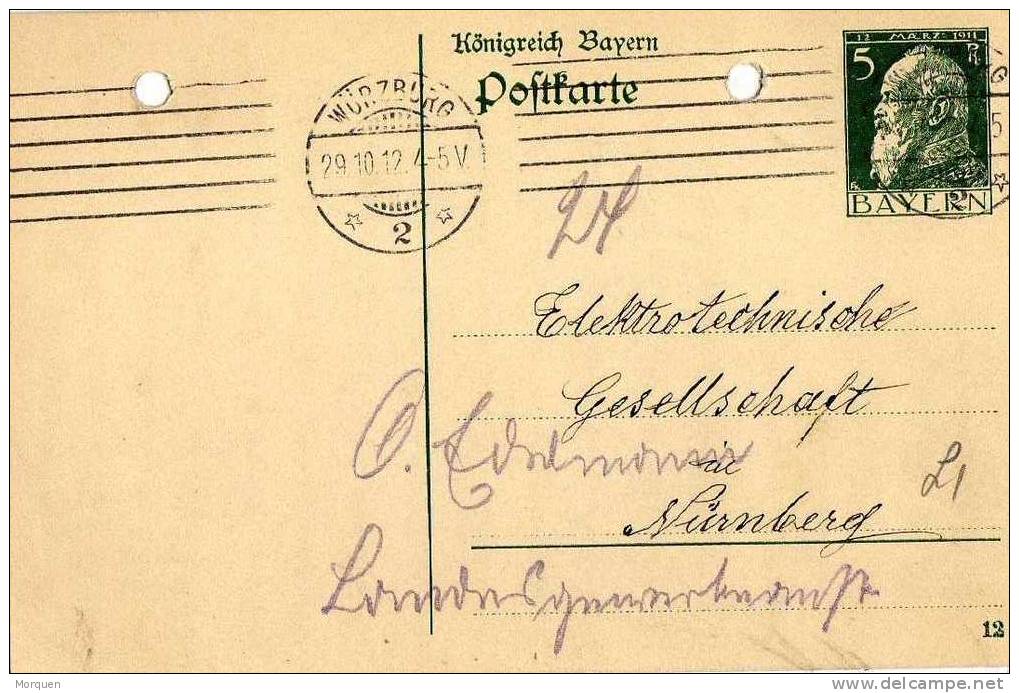 Königreich Bayern
Postkarte
12 MÄRZ 1911
5 Pf
BAYERN
WÜRZBURG
29.10.12. 4-5 V.
2
Elektrotechnische
Gesellschaft
in
Nürnberg
L1
O. Edelmann
12
Morquen
delcampe.net